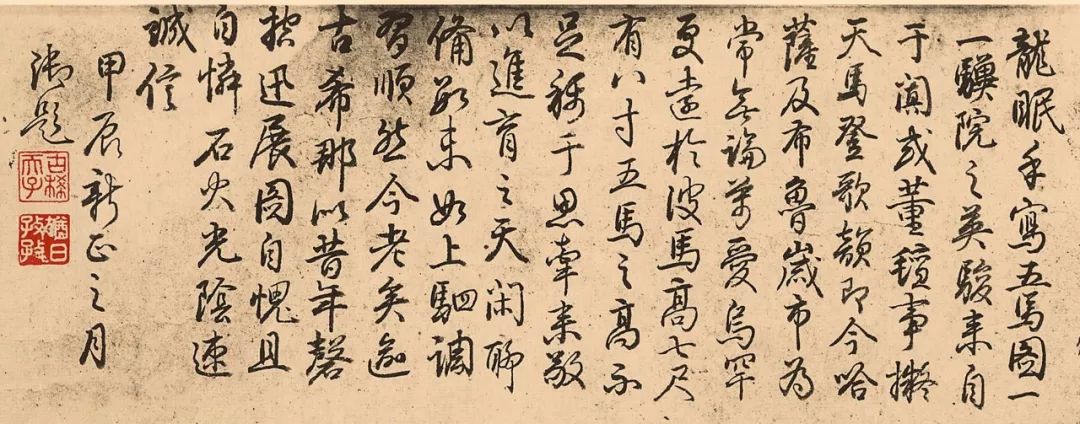 龍眠手寫五馬圖一
一驥院之英駿来自
于闐或董氊事擬
天馬登歌韻即今哈
薩及布魯歲市為
常無論 愛烏罕
更遠於彼馬高七尺
有八寸五馬之高不
足稱于思牽来敬
以進育之天閑聊
備數未如上駟調
習順然今老矣逾
古希那以昔年磬
控迅展圖自愧且
自憐石火光陰速
誠信
甲辰新正之月
御題
古稀天子
猶日孜孜